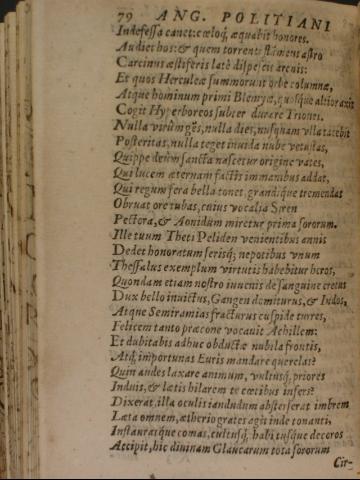 79 ANG. POLITIANI
Indefessa canet: cœloq́, æquabit honores.
Audiet hos: & quem torrenti flamens astro
Carcinus æstiferis latè dispescit arcuis:
Et quos Herculeæ summorunt orbe columnæ,
Atque hominum primi Blemyæ, quosque altior axis
Cogit Hyperboreos subter durare Triones.
Nulla virûm gẽs, nulla dies, nusquam vlla tacebit
Posteritas, nulla teget inuida nube vetustas,
Quippe deûm sancta nascetur origine vates,
Qui lucem æternam factis immanibus addat,
Qui regum fera bella tonet, grandique tremendas
Obruat ore tubas, cuius vocalia Siren
Pectora, & Aonidum miretur prima sororum.
Ille tuum Theti Peliden venientibus annis
Dedet honoratum serisq́; nepotibus vnum
Thessalus exemplum virtutis habebitur heros,
Quondam etiam nostro iuuenis de sanguine cretus
Dux bello inuictus, Gangen domiturus, & Indos,
Atque Semiramias fracturus cuspide turres,
Felicem tanto præcone vocauit Achillem:
Et dubitabis adhuc obductæ nubila frontis,
Atq́; importunas Euris mandare querelas?
Quin audes laxare animum, vultusq́, priores
Induis, & lætis hilarem te cœtibus infers?
Dixerat, illa oculis iandudum absterserat imbrem
Læta omnem, ætherio grates agit inde tonanti,
Instauratque comas, cultusq́; habitusque decoros
Accipit, hic diuinam Glaucarum tota sororum
Cir-